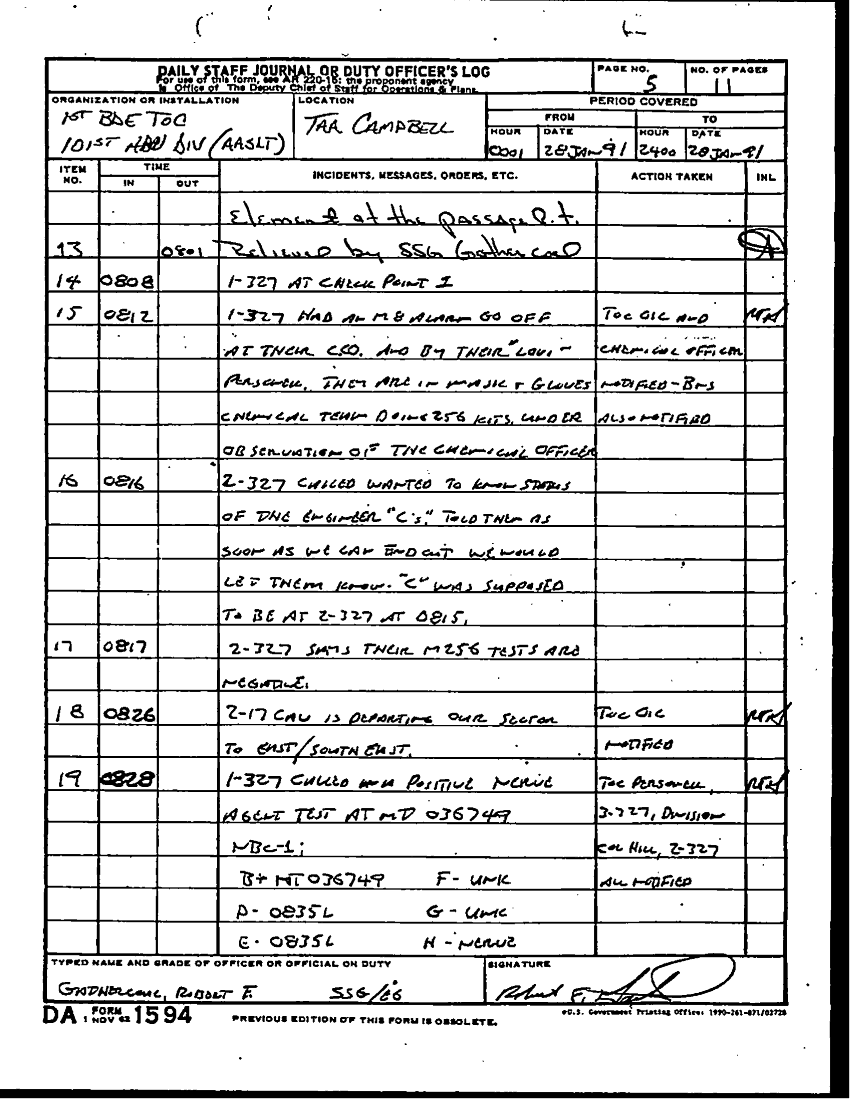 DAILY STAFF JOURNAL OR DUTY OFFICER'S LOG
For use of this form, see AR 220-15; the proponent agency
is Office of The Deputy Chief of Staff for Operations & Plans.
PAGE NO.
5
NO. OF PAGES
11
ORGANIZATION OR INSTALLATION
1ST BDE TOC
101ST ABN DIV (AASLT)
LOCATION
TAA CAMPBELL
PERIOD COVERED
FROM
TO
HOUR
DATE
HOUR
DATE
0001
28 JAN 91
2400
28 JAN 91
ITEM NO.
TIME
IN
OUT
INCIDENTS, MESSAGES, ORDERS, ETC.
ACTION TAKEN
INL
Element at the passage p.t.
13 0801 Relieved by SSG
14 0808 1-327 AT CHECK POINT 1
15 0812 1-327 HAD AN M8 ALARM GO OFF TOC OIC AND
AT THEIR AND BY THEIR CHEMICAL OFFICER
PERSONNEL. THEY ARE IN MASK + GLOVES NOTIFIED - BNS
CHEMICAL TEAM DOING 256 KITS, UNDER ALSO NOTIFIED
OBSERVATION OF THE CHEMICAL OFFICER
16 0816 2-327 CALLED WANTED TO KNOW STATUS
OF THE ENGINEER "C's," TOLD THEM AS
SOON AS WE CAN FIND OUT WE WOULD
LET THEM KNOW. "C" WAS SUPPOSED
TO BE AT 2-327 AT 0815.
17 0817 2-327 SAYS THEIR M256 TESTS ARE
NEGATIVE.
18 0826 2-17 CAV IS DEPARTING OUR SECTOR TOC OIC
TO EAST/SOUTH EAST. NOTIFIED
19 0828 1-327 CALLED IN A POSITIVE NERVE TOC PERSONNEL,
AGENT TEST AT MT 036749 3-327, DIVISION
NBC-1; COL HILL, 2-327
B+ MT 036749 F - UNK ALL NOTIFIED
D - 0835L G - UNK
E - 0835L H - NERVE
TYPED NAME AND GRADE OF OFFICER OR OFFICIAL ON DUTY
ROBERT F. SSG/E6
SIGNATURE
Robert F.
DA FORM 1 NOV 62 1594
PREVIOUS EDITION OF THIS FORM IS OBSOLETE.
*U.S. Government Printing Office: 1990-261-871/02728